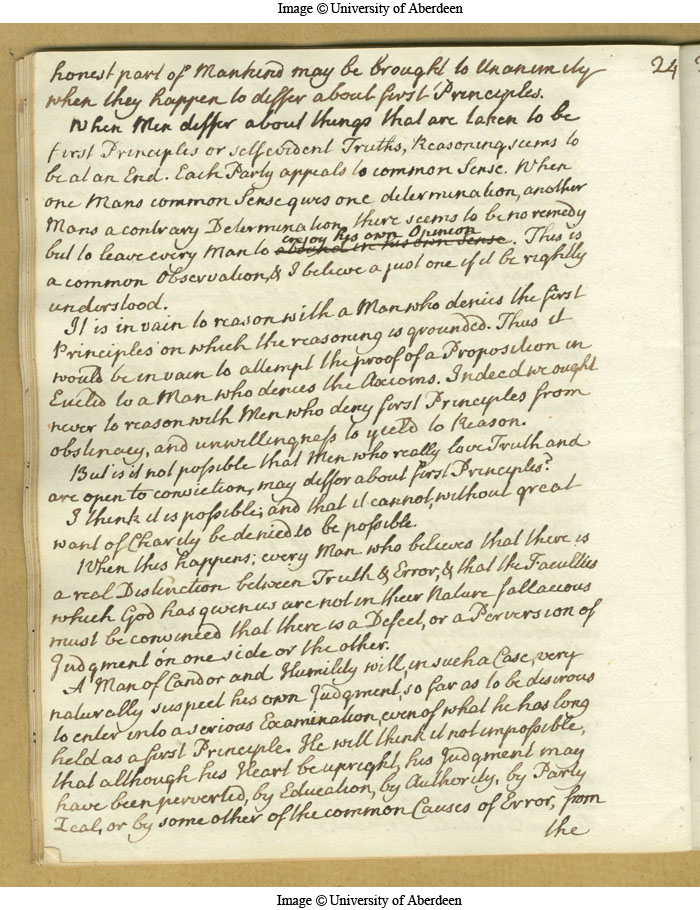 Image © University of Aberdeen
24
honest part of Mankind may be brought to Unanimity
when they happen to differ about first Principles.
When Men differ about things that are taken to be
first Principles or selfevident Truths, Reasoning seems to
be at an End. Each Party appeals to common Sense. When
one Mans common Sense gives one determination, another
Mans a contrary Determination, there seems to be no remedy
enjoy his own Opinion
but to leave every Man to abound in his own Sense. This is
a common Observation, & I believe a just one if it be rightly
understood.
It is in vain to reason with a Man who denies the first
Principles on which the reasoning is grounded. Thus it
would be in vain to attempt the proof of a Proposition in
Euclid to a Man who denies the Axioms. Indeed we ought
never to reason with Men who deny first Principles from
obstinacy, and unwillingness to yield to Reason.
But is it not possible that Men who really love Truth and
are open to conviction, may differ about first Principles?
I think it is possible; and that it cannot, without great
want of Charity be denied to be possible.
When this happens; every Man who believes that there is
a real Distinction between Truth & Error, & that the Faculties
which God has given us are not in their Nature fallacious
must be convinced that there is a Defect, or a Perversion of
Judgment on one side or the other.
A Man of Candor and Humility will, in such a Case, very
naturally suspect his own Judgment, so far as to be desirous
to enter into a serious Examination, even of what he has long
held as a first Principle. He will think it not impossible,
that although his Heart be upright, his Judgment may
have been perverted, by Education, by Authority, by Party
Zeal, or by some other of the common Causes of Error, from
the
Image © University of Aberdeen